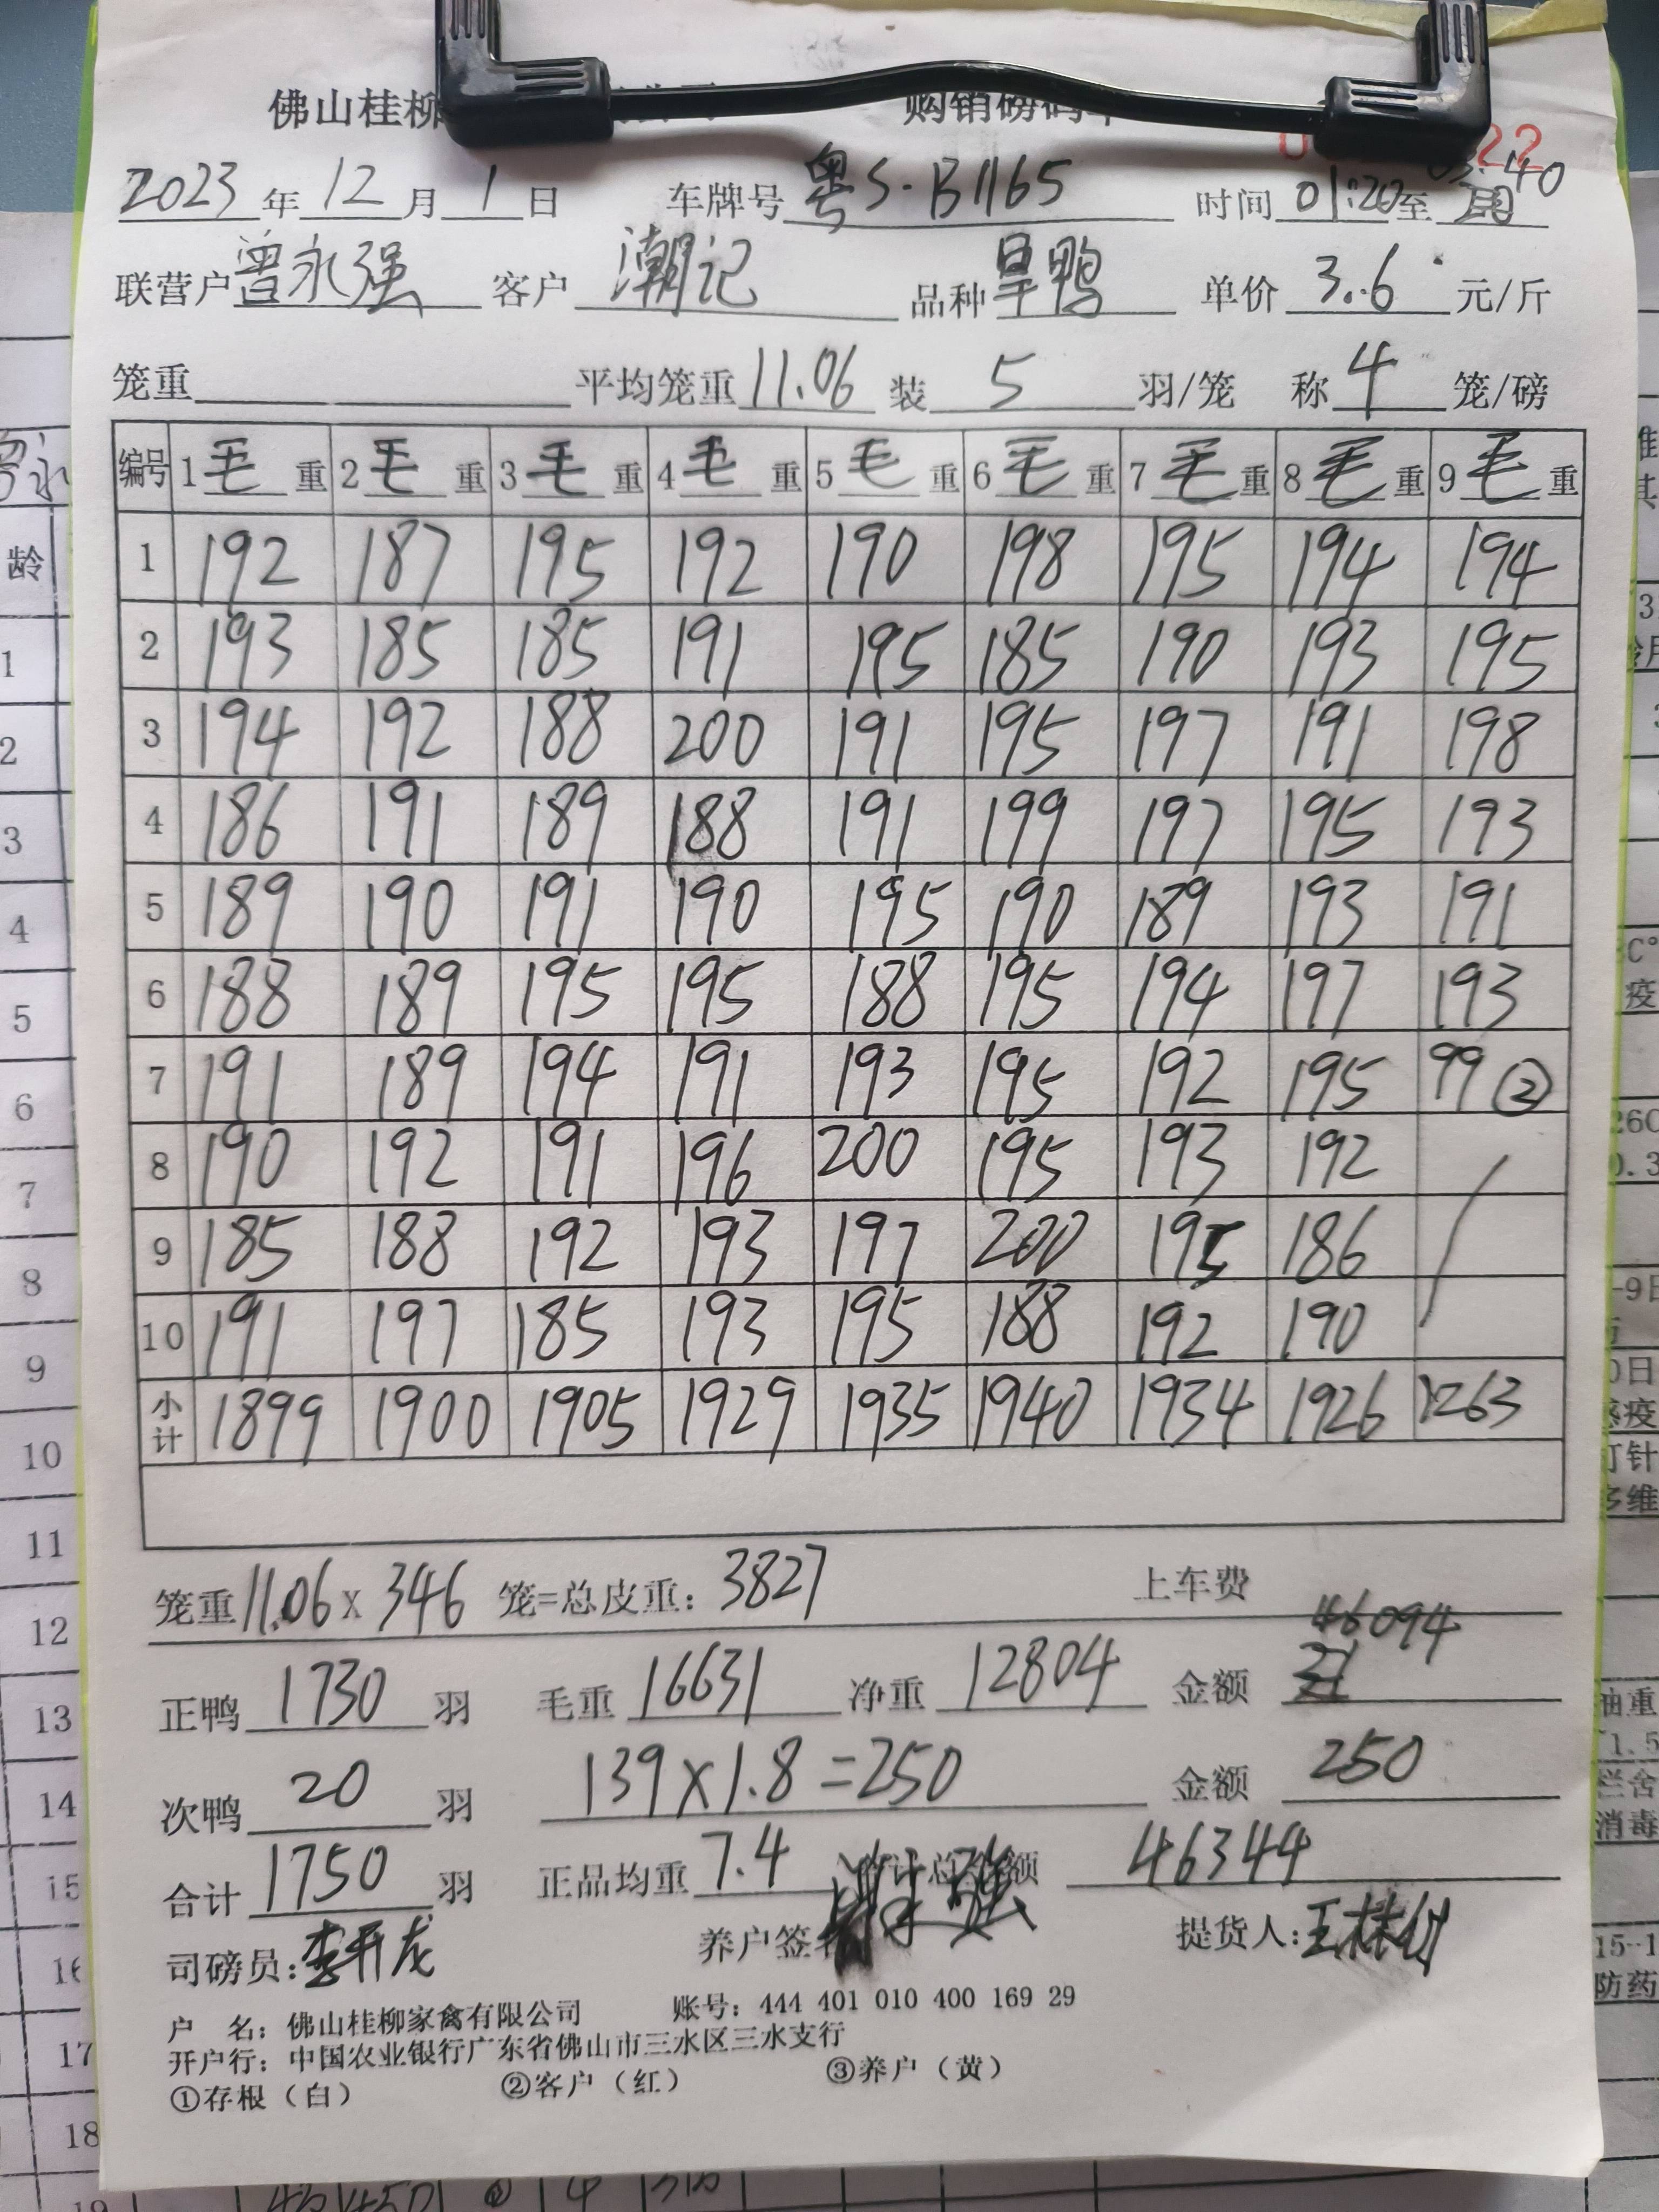 佛山桂柳 购销磅码单
22
2023 年 12 月 1 日 车牌号 粤S·B1165 时间 01:20 至 03:40
联营户 曾永强 客户 潮记 品种 旱鸭 单价 3.6 元/斤
笼重 平均笼重 11.06 装 5 羽/笼 称 4 笼/磅
编号 1毛重 2毛重 3毛重 4毛重 5毛重 6毛重 7毛重 8毛重 9毛重
1 192 187 195 192 190 198 195 194 194
2 193 185 185 191 195 185 190 193 195
3 194 192 188 200 191 195 197 191 198
4 186 191 189 188 191 199 197 195 193
5 189 190 191 190 195 190 189 193 191
6 188 189 195 195 188 195 194 197 193
7 191 189 194 191 193 195 192 195 99②
8 190 192 191 196 200 195 193 192
9 185 188 192 193 197 200 195 186
10 191 197 185 193 195 188 192 190
小计 1899 1900 1905 1929 1935 1940 1934 1926 1263
笼重 11.06 x 346 笼=总皮重: 3827 上车费
正鸭 1730 羽 毛重 16631 净重 12804 金额 46094
次鸭 20 羽 139×1.8=250 金额 250
合计 1750 羽 正品均重 7.4 合计总金额 46344
司磅员: 李开龙 养户签名 提货人:
户 名: 佛山桂柳家禽有限公司 账号: 444 401 010 400 169 29
开户行: 中国农业银行广东省佛山市三水区三水支行
①存根(白) ②客户(红) ③养户(黄)